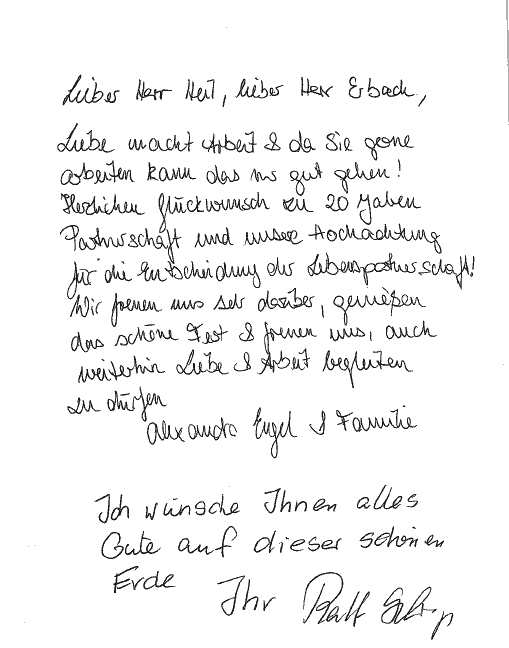 Lieber Herr Heil, lieber Herr Erbach,
Liebe macht Arbeit & da Sie gerne
arbeiten kann das nur gut gehen!
Herzlichen Glückwunsch zu 20 Jahren
Partnerschaft und unsere Hochachtung
für die Entscheidung der Lebenspartnerschaft!
Wir freuen uns sehr darüber, genießen
das schöne Fest & freuen uns, auch
weiterhin Liebe & Arbeit begleiten
zu dürfen
Alexandra Engel & Familie
Ich wünsche Ihnen alles
Gute auf dieser schönen
Erde
Ihr Ralf